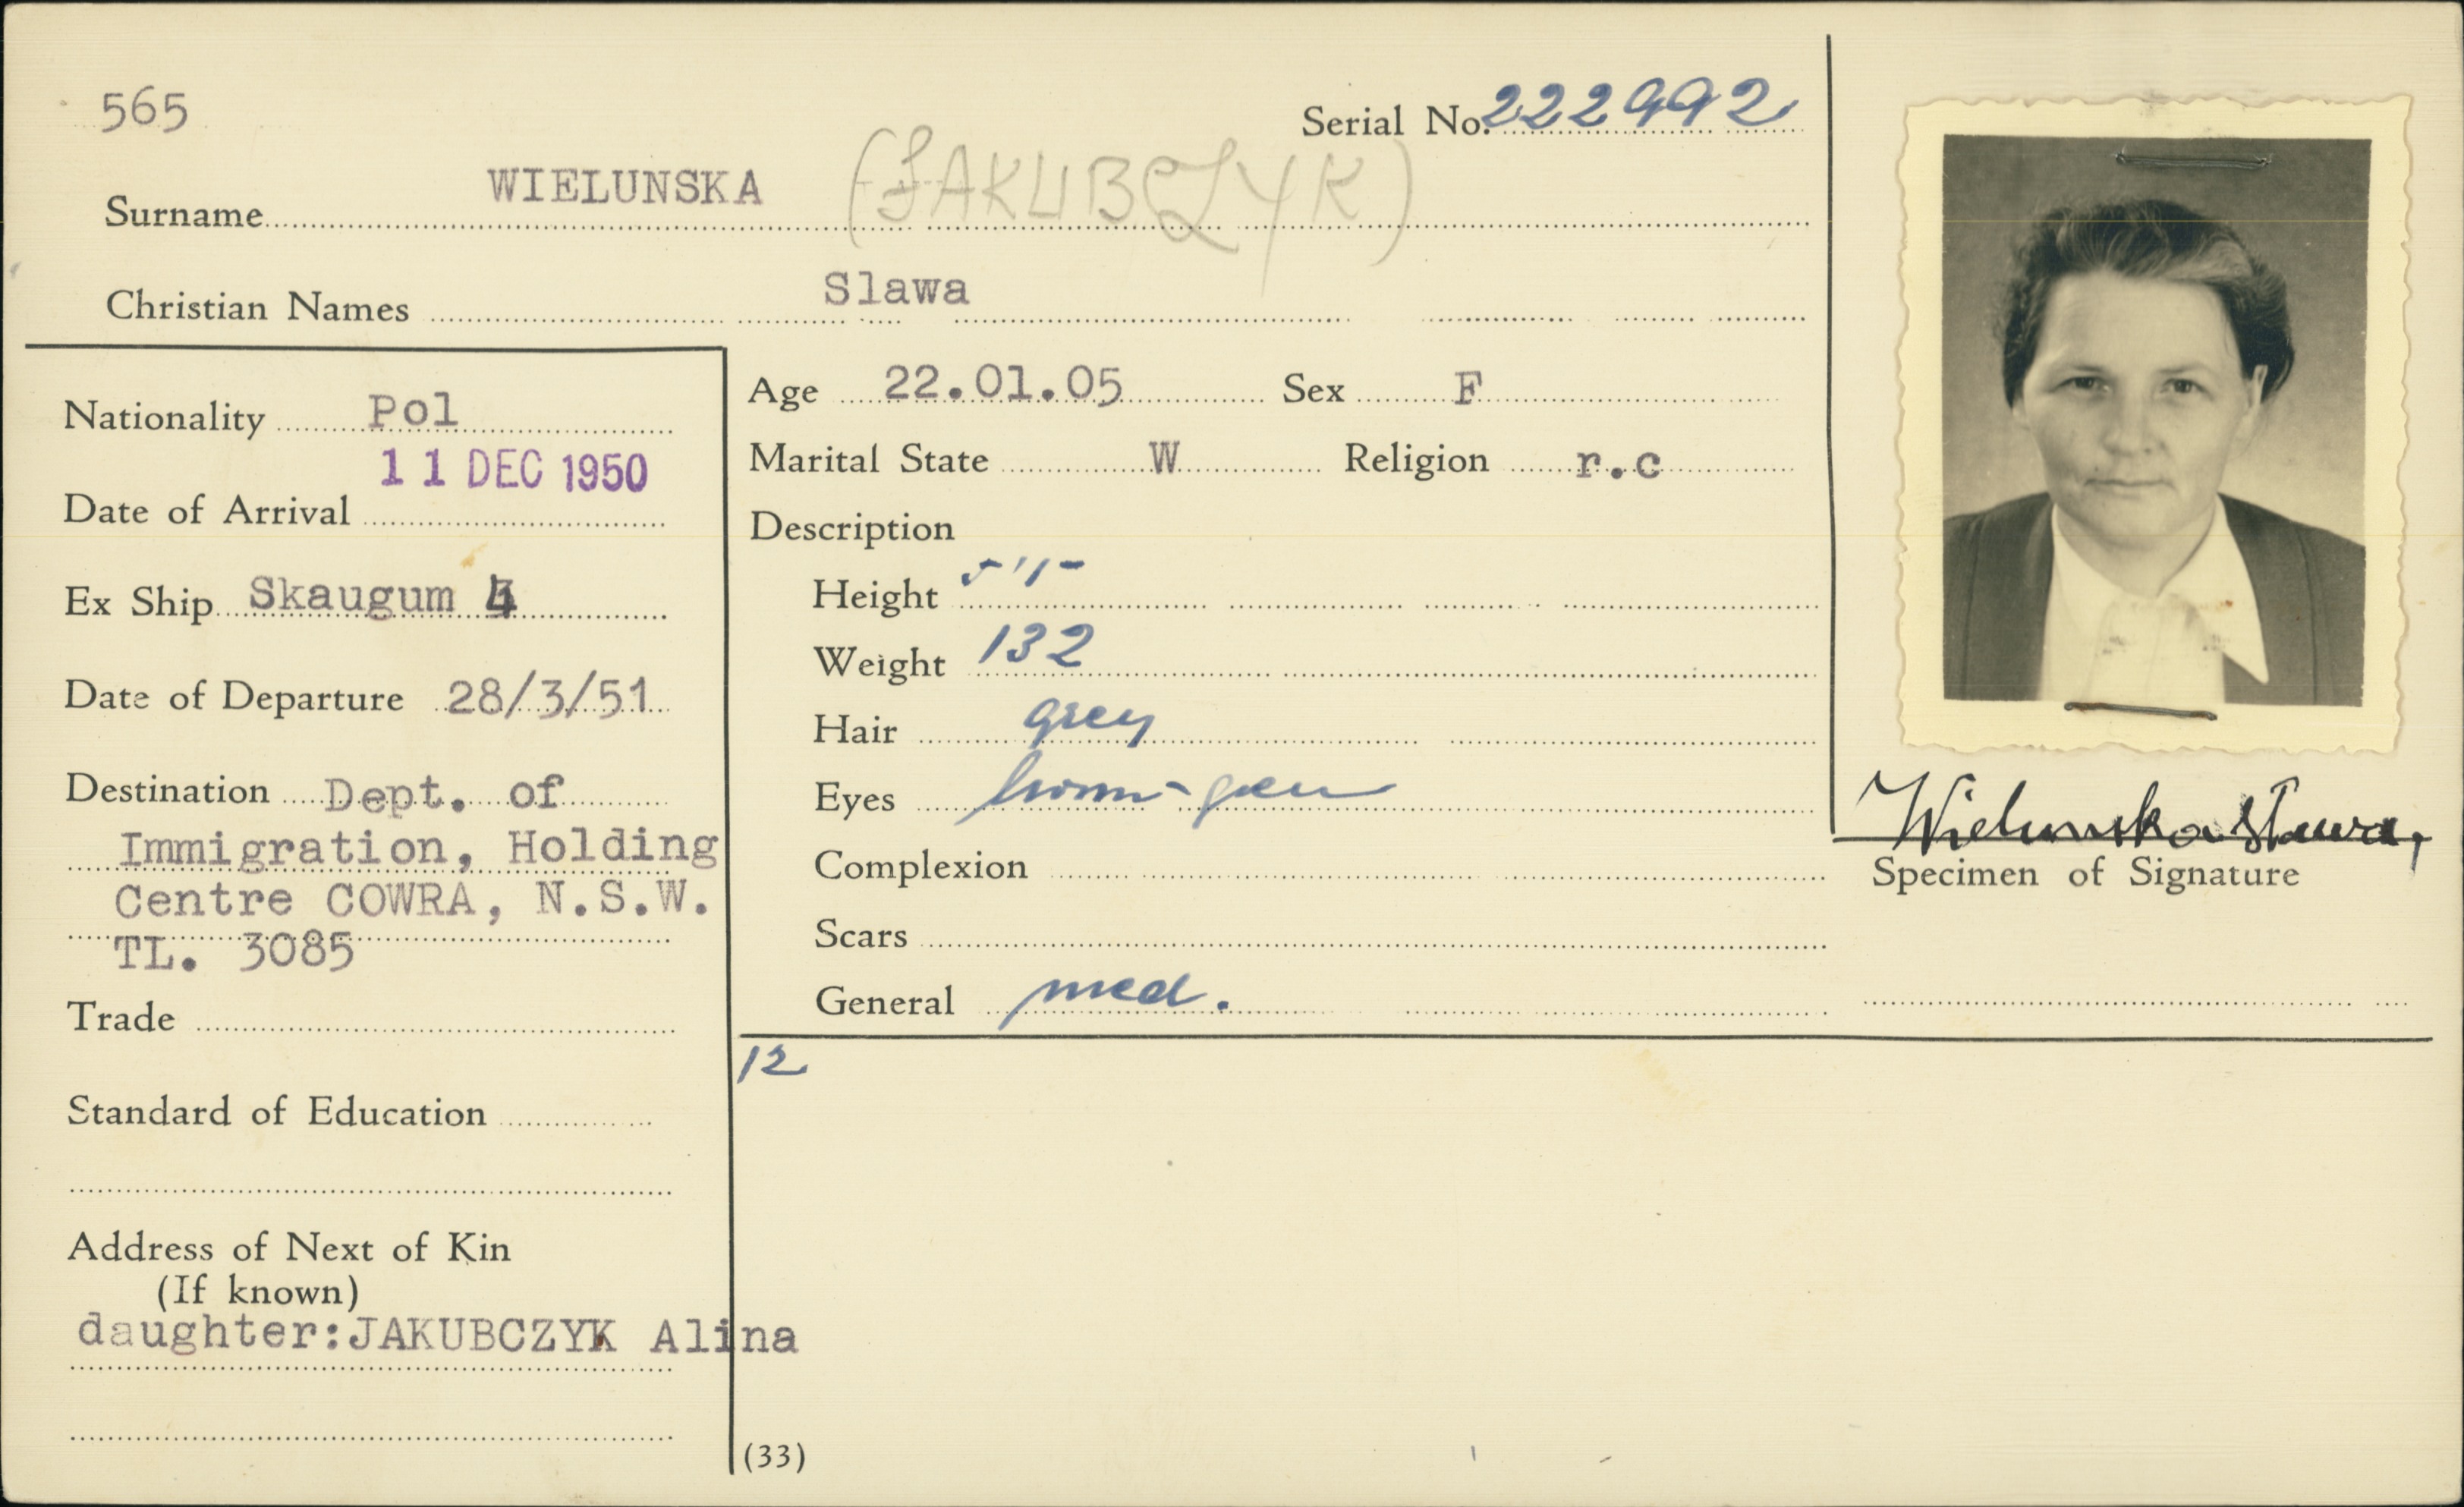 565
Serial No. 222992
Surname WIELUNSKA (JAKUBCZYK)
Christian Names Slawa
Nationality Pol
Date of Arrival 11 DEC 1950
Ex Ship Skaugum
Date of Departure 28/3/51
Destination Dept. of
Immigration, Holding
Centre COWRA, N.S.W.
TL. 3085
Trade
Standard of Education
Address of Next of Kin
(If known)
daughter:JAKUBCZYK Alina
Age 22.01.05 Sex F
Marital State W Religion r.c
Description
Height 5'1"
Weight 132
Hair grey
Eyes brown-green
Complexion
Scars
General med.
12
(33)
Wielunska Sława,
Specimen of Signature